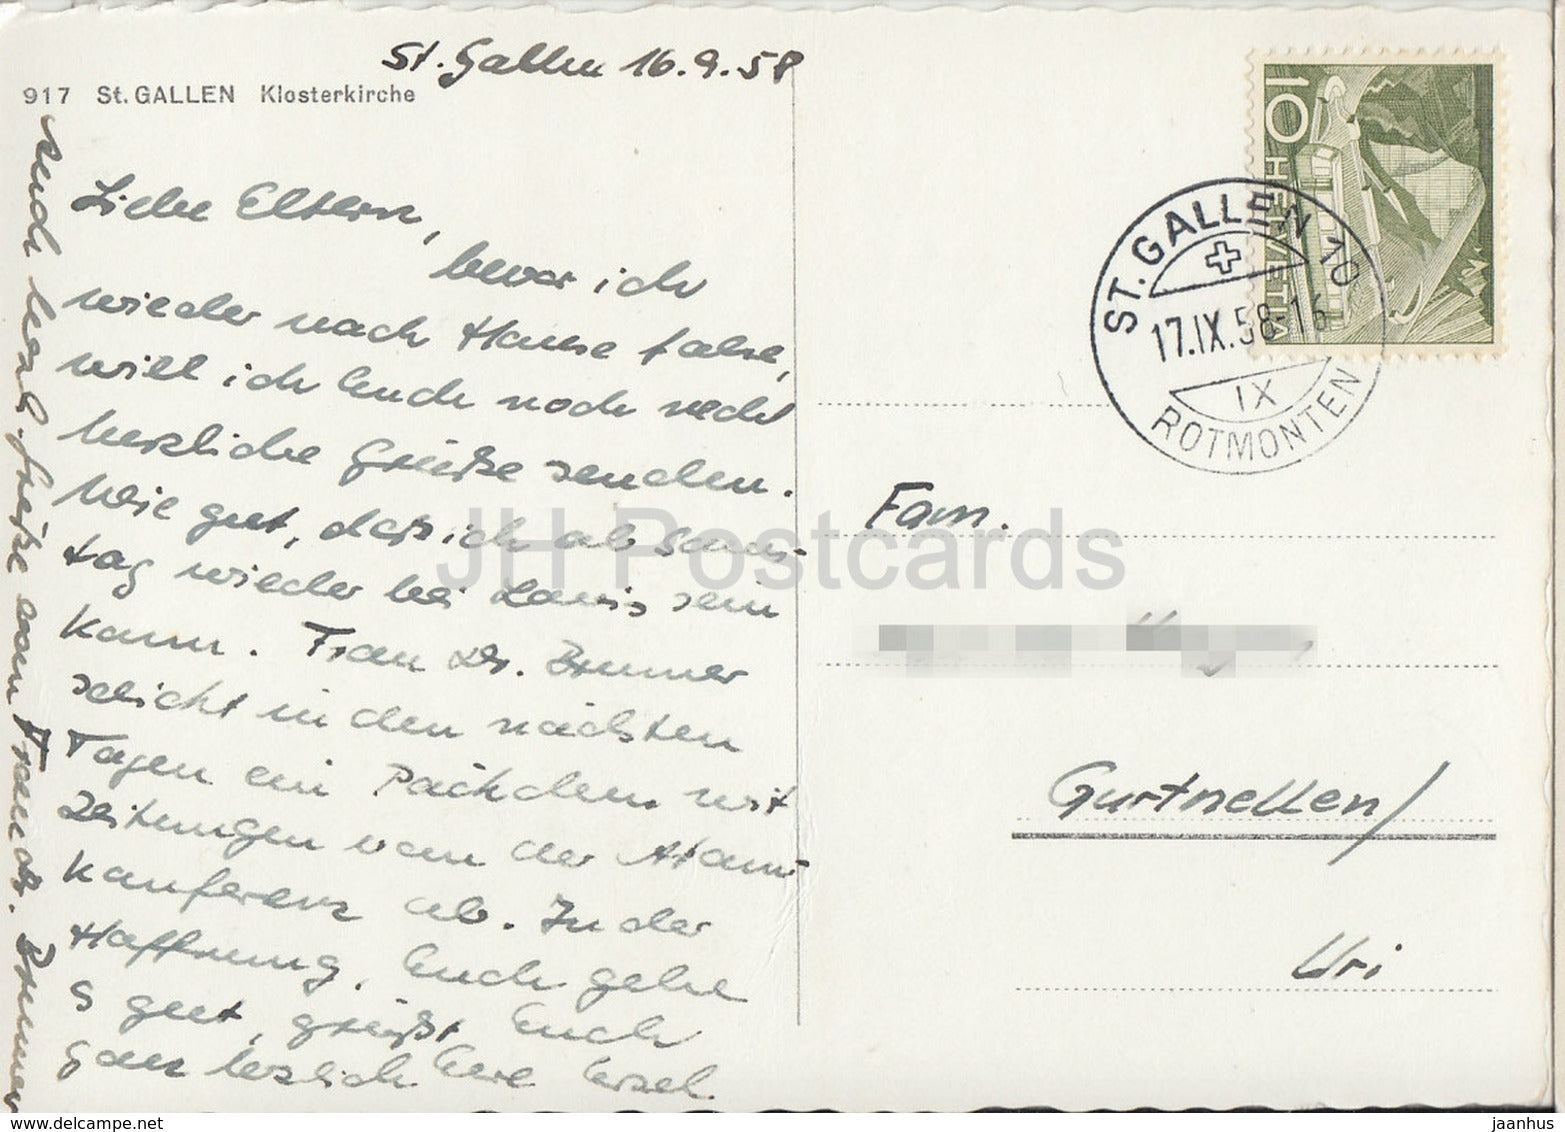 St. Gallen 16.9.58
917 St. GALLEN Klosterkirche
Liebe Eltern,
bevor ich
wieder nach Hause fahre,
will ich Euch noch recht
herzliche Grüße senden.
Wie gut, daß ich ab Sams-
tag wieder bei Louis sein
kann. Frau Dr. Brunner
schickt in den nächsten
Tagen ein Päckchen mit
Zeitungen von der Atom-
Konferenz ab. In der
Hoffnung, Euch gehe
s gut, grüßt Euch
ganz herzlich Eure Ursel.
Auch herzl. Grüße von Frau Dr. Brunner
HELVETIA
10
ST. GALLEN 10
17.IX.58-16
IX
ROTMONTEN
Fam.
Gurtnellen/
Uri
JH Postcards
delcampe.net
jaanhus